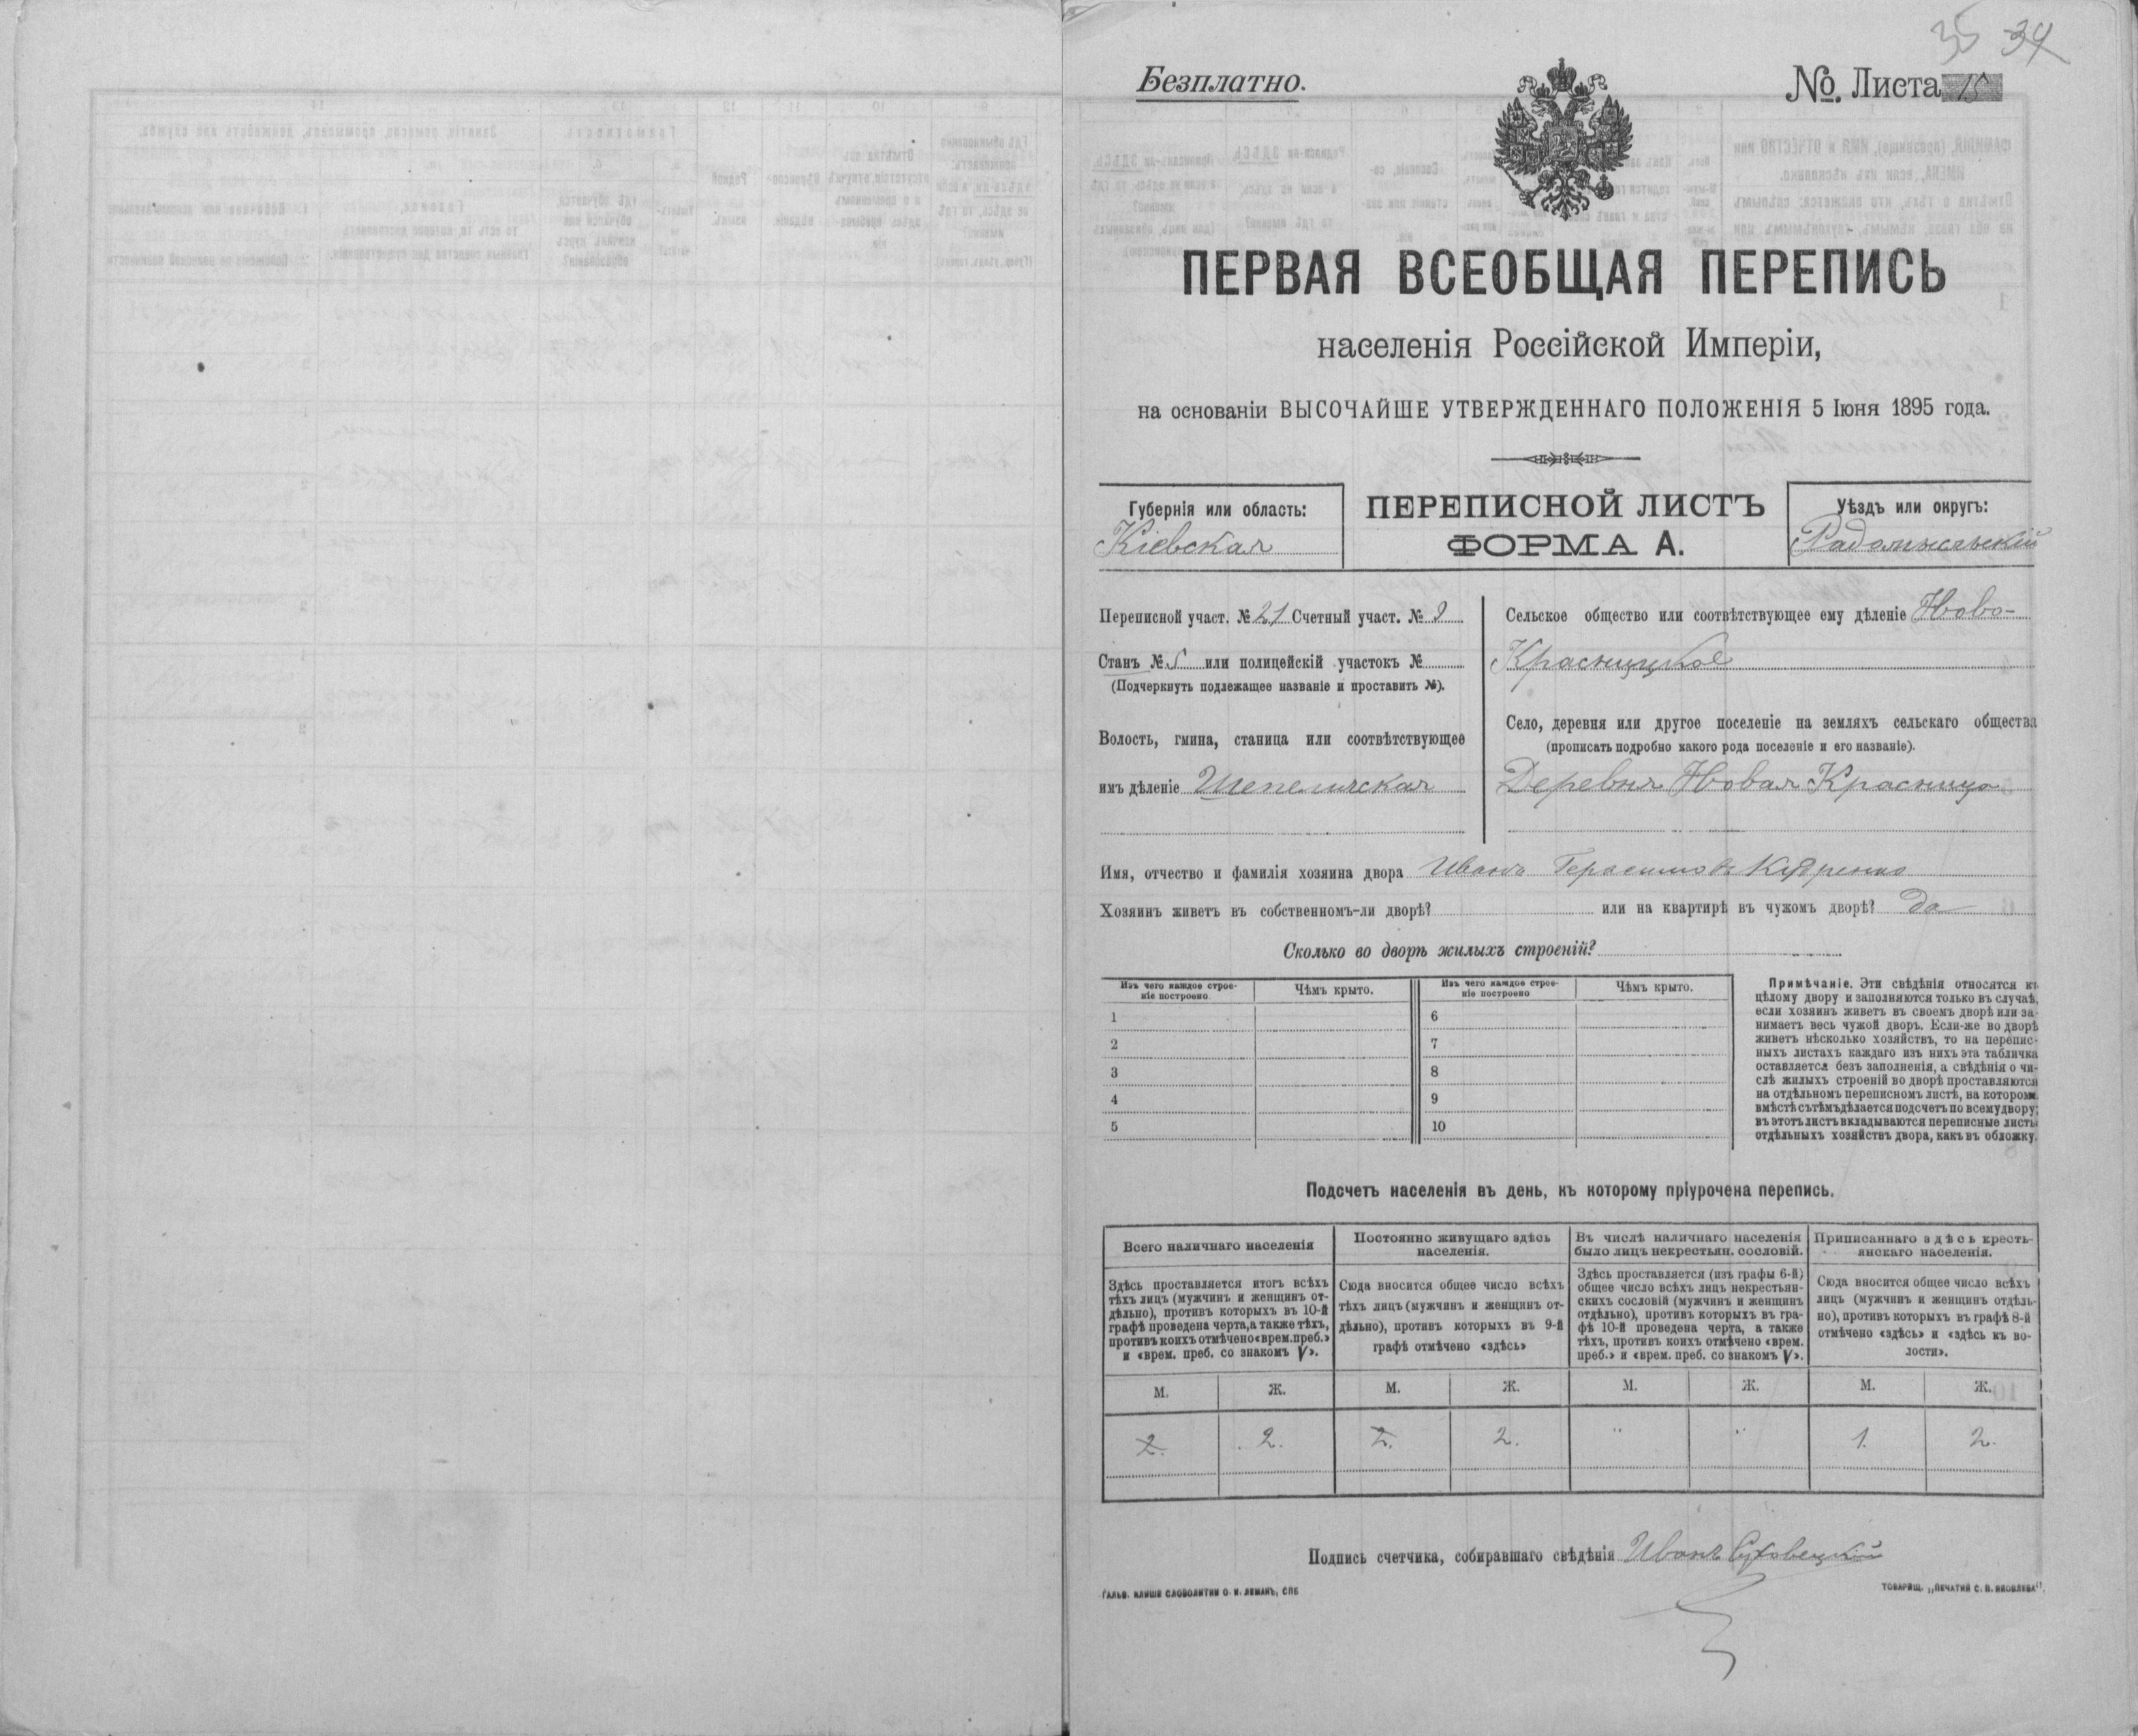 35 34
Безплатно.
№ Листа 15
ПЕРВАЯ ВСЕОБЩАЯ ПЕРЕПИСЬ
населенія Россійской Имперіи,
на основаніи ВЫСОЧАЙШЕ УТВЕРЖДЕННАГО ПОЛОЖЕНІЯ 5 Іюня 1895 года.
Губернія или область:
Кіевская
ПЕРЕПИСНОЙ ЛИСТЪ
ФОРМА А.
Уѣздъ или округъ:
Радомысльскій
Переписной участ. № 21 Счетный участ. № 9
Станъ № 5 или полицейскій участокъ №
(Подчеркнуть подлежащее названіе и проставить №).
Волость, гмина, станица или соотвѣтствующее
имъ дѣленіе Шепеличская
Сельское общество или соотвѣтствующее ему дѣленіе Ново-
Красницкое
Село, деревня или другое поселеніе на земляхъ сельскаго общества
(прописать подробно какого рода поселеніе и его названіе).
Деревня Новая Красница
Имя, отчество и фамилія хозяина двора Иванъ Герасимовъ
Хозяинъ живетъ въ собственномъ-ли дворѣ? или на квартирѣ въ чужомъ дворѣ? да
Сколько во дворѣ жилыхъ строеній?
Изъ чего каждое строе-
ніе построено
Чѣмъ крыто.
Изъ чего каждое строе-
ніе построено
Чѣмъ крыто.
1
2
3
4
5
6
7
8
9
10
Примѣчаніе. Эти свѣдѣнія относятся къ
цѣлому двору и заполняются только въ случаѣ,
если хозяинъ живетъ въ своемъ дворѣ или за-
нимаетъ весь чужой дворъ. Если-же во дворѣ
живетъ нѣсколько хозяйствъ, то на перепис-
ныхъ листахъ каждаго изъ нихъ эта табличка
оставляется безъ заполненія, а свѣдѣнія о чи-
слѣ жилыхъ строеній во дворѣ проставляются
на отдѣльномъ переписномъ листѣ, на которомъ
вмѣстѣ съ тѣмъ дѣлается подсчетъ по всему двору;
въ этотъ листъ вкладываются переписные листы
отдѣльныхъ хозяйствъ двора, какъ въ обложку.
Подсчетъ населенія въ день, къ которому пріурочена перепись.
Всего наличнаго населенія
Здѣсь проставляется итогъ всѣхъ
тѣхъ лицъ (мужчинъ и женщинъ от-
дѣльно), противъ которыхъ въ 10-й
графѣ проведена черта, а также тѣхъ,
противъ коихъ отмѣчено «врем. преб.»
и «врем. преб. со знакомъ V».
Постоянно живущаго здѣсь
населенія.
Сюда вносится общее число всѣхъ
тѣхъ лицъ (мужчинъ и женщинъ от-
дѣльно), противъ которыхъ въ 9-й
графѣ отмѣчено «здѣсь»
Въ числѣ наличнаго населенія
было лицъ некрестьян. сословій.
Здѣсь проставляется (изъ графы 6-й)
общее число всѣхъ лицъ некрестьян-
скихъ сословій (мужчинъ и женщинъ
отдѣльно), противъ которыхъ въ гра-
фѣ 10-й проведена черта, а также
тѣхъ, противъ коихъ отмѣчено «врем.
преб.» и «врем. преб. со знакомъ V».
Приписаннаго здѣсь кресть-
янскаго населенія.
Сюда вносится общее число всѣхъ
лицъ (мужчинъ и женщинъ отдѣль-
но), противъ которыхъ въ графѣ 8-й
отмѣчено «здѣсь» и «здѣсь къ во-
лости».
М. Ж. М. Ж. М. Ж. М. Ж.
2. 2. 2. 2. " " 1. 2.
Подпись счетчика, собиравшаго свѣдѣнія Иванъ Суховецкій
ГАЛЬВ. КЛИШЕ СЛОВОЛИТНИ О. И. ЛЕМАНЪ, СПБ
ТОВАРИЩ. „ПЕЧАТНЯ С. П. ЯКОВЛЕВА"